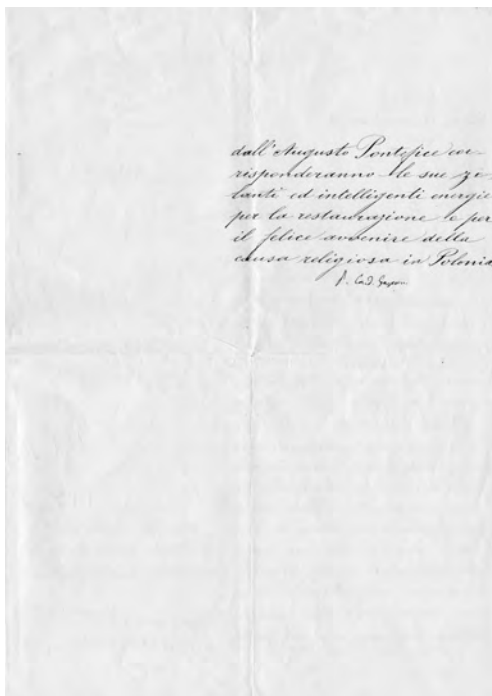 dall'Augusto Pontefice cor-
risponderanno le sue ze-
lanti ed intelligenti energie
per la restaurazione e per
il felice avvenire della
causa religiosa in Polonia
P. Card. Gasparri